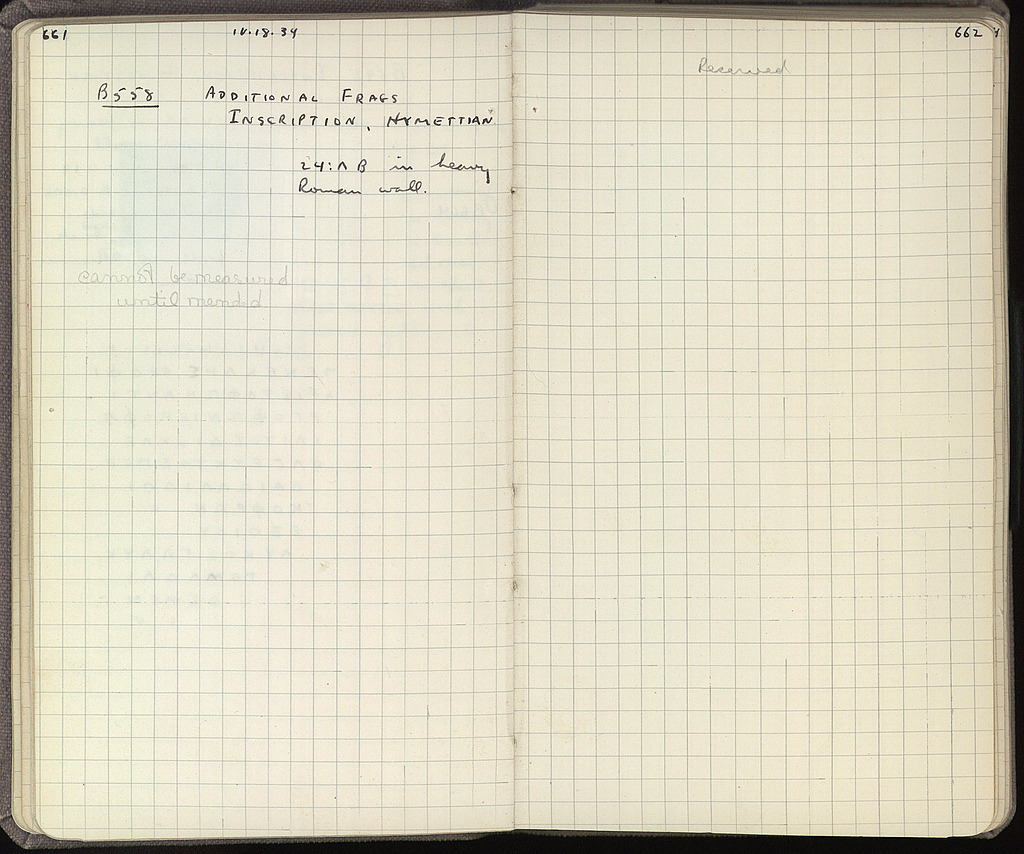 661 IV.18.34
B558 ADDITIONAL FRAGS
INSCRIPTION, HYMETTIAN
24:Λ B in heavy
Roman wall.
cannot be measured
until mended
662
Reserved